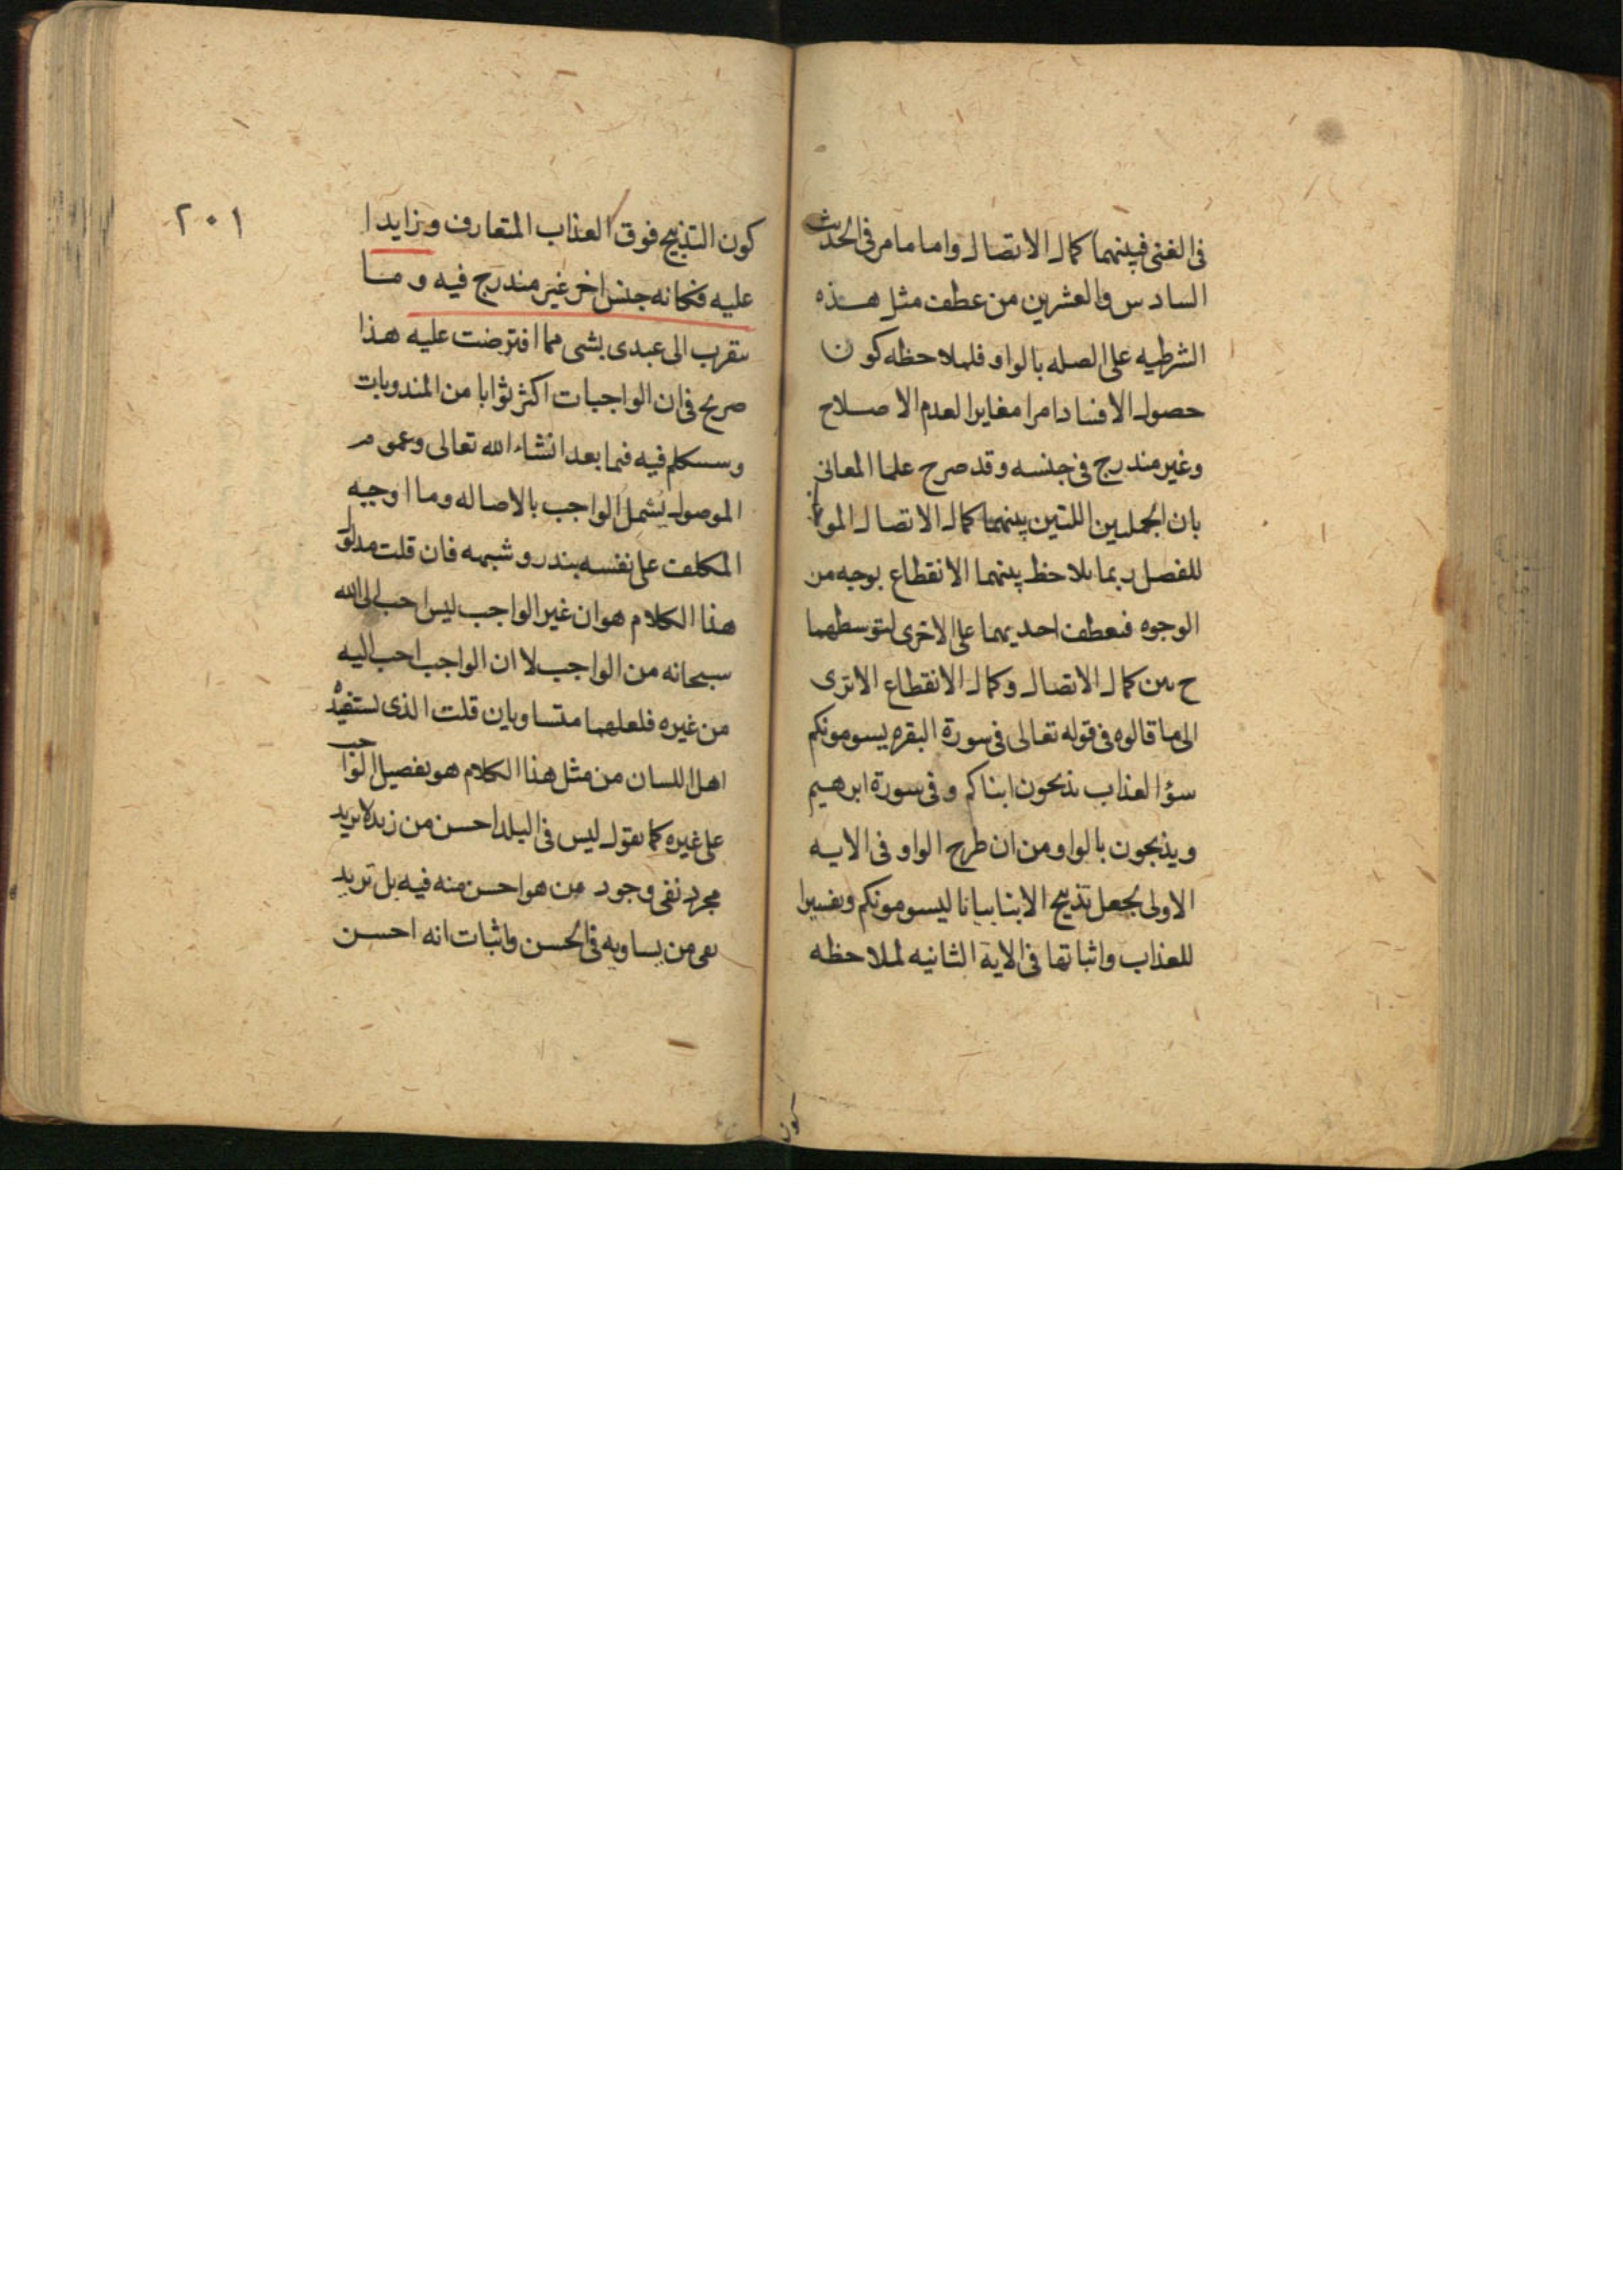 فى الغنى فبينهما كمال الاتصال واما ما مر فى الحديث
السادس والعشرين من عطف مثل هذه
الشرطيه على الصله بالواو فلملاحظه كون
حصول الافساد امرا مغايرا لعدم الاصلاح
وغير مندرج فى جنسه وقد صرح علما المعانى
بان الجملتين اللتين بينهما كمال الاتصال
للفصل ربما يلاحظ بينهما الانقطاع بوجه من
الوجوه فيعطف احديهما على الاخرى لتوسطهما
ح بين كمال الاتصال وكمال الانقطاع الا ترى
الى ما قالوه فى قوله تعالى فى سورة البقره يسومونكم
سؤ العذاب يذبحون ابناكم وفى سورة ابرهيم
ويذبحون بالواو من ان طرح الواو فى الايه
الاولى بجعل تذبيح الابنا بيانا ليسومونكم وتفسيرا
للعذاب واثباتها فى الاية الثانيه لملاحظه
كون
٢٠١
كون التذبيح فوق العذاب المتعارف وزايدا
عليه فكانه جنس اخر غير مندرج فيه وما
يتقرب الى عبدى بشى مما افترضت عليه هذا
صريح فى ان الواجبات اكثر ثوابا من المندوبات
وسنتكلم فيه فيما بعد انشاء الله تعالى وعموم
الموصول يشمل الواجب بالاصاله وما اوجبه
المكلف على نفسه بنذر وشبهه فان قلت مدلول
هذا الكلام هو ان غير الواجب ليس احب الى الله
سبحانه من الواجب لا ان الواجب احب اليه
من غيره فلعلهما متساويان قلت الذى يستفيده
اهل اللسان من مثل هذا الكلام هو تفضيل الواجب
على غيره كما تقول ليس فى البلد احسن من زيد لا تريد
مجرد نفى وجود من هو احسن منه فيه بل تريد
نفى من يساويه فى الحسن واثبات انه احسن